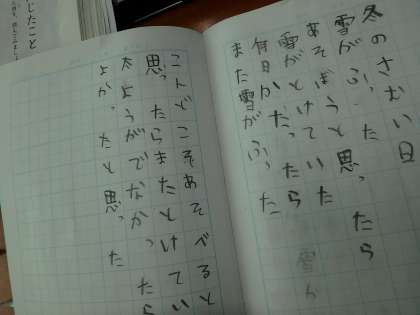 じたこと
冬のさむい日
雪がふった
あそぼうと思ったら
雪がとけていた
毎日かだったら
また雪がふった
こんどこそあそべると
思ったらまたとけてい
太ようがでなかったら
よかったと思った